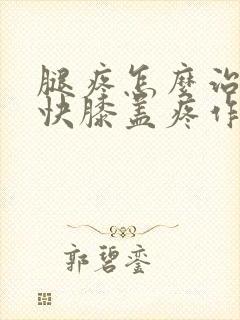 腿疼怎麽治
快膝盖疼作
郭碧銮